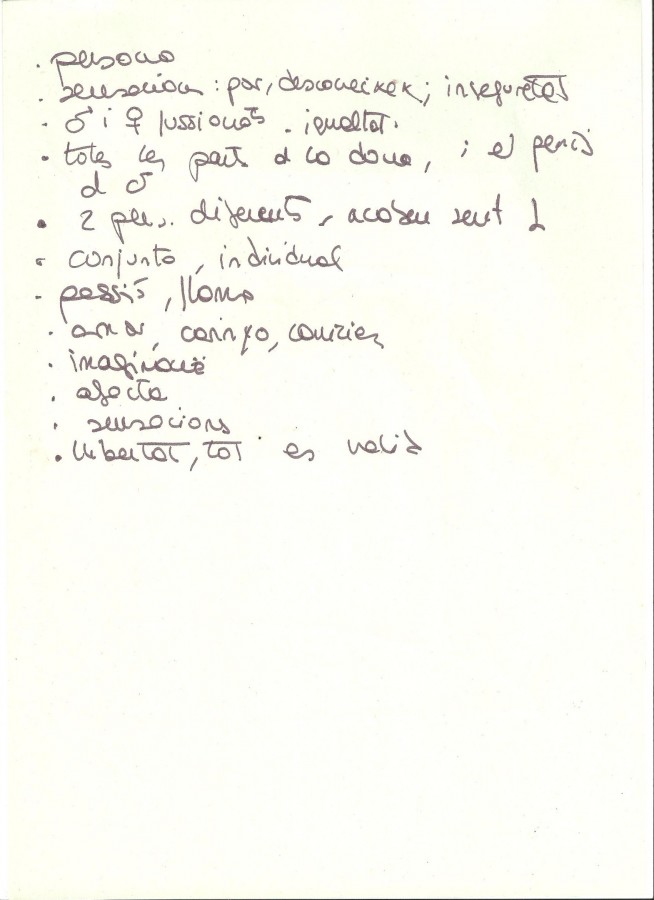 . persona
. sensacions : por, desconeixer; inseguretat
. ♂ i ♀ fussionats. igualtat.
. totes les parts d la dona, i el penis
d ♂
. 2 pers. diferents, acaben sent 1
. conjunta, individual
. passió, flama
. amor, carinyo,
. imaginació
. afecte
. sensacions
. llibertat, tot es valid